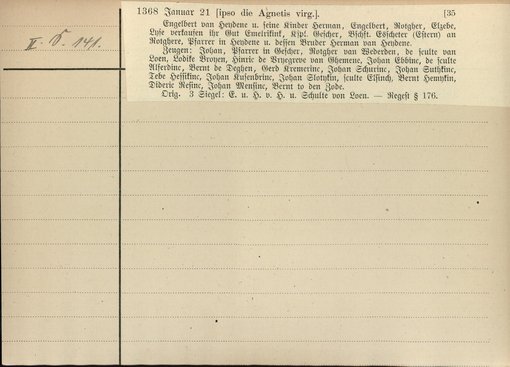 II. D. 141.
1368 Januar 21 [ipso die Agnetis virg.]. [35
Engelbert van Heydene u. seine Kinder Herman, Engelbert, Rotgher, Elzebe,
Lyse verkaufen ihr Gut Emelrikink, Kspl. Gescher, Bschft. Eöscheter (Estern) an
Rotghere, Pfarrer in Heydene u. dessen Bruder Herman van Heydene.
Zeugen: Johan, Pfarrer in Gescher, Rotgher van Wederden, de sculte van
Loen, Lodike Broyen, Hinric de Vryegreve van Ghemene, Johan Ebbinc, de sculte
Alferdinc, Bernt de Deghen, Gerd Kremerinc, Johan Schurinc, Johan Suthkinc,
Tebe Hessikinc, Johan Kusenbrinc, Johan Slotykin, sculte Elsinch, Bernt Hemykin,
Dideric Resinc, Johan Mensinc, Bernt to den Zode.
Orig. 3 Siegel: E. u. H. v. H. u. Schulte von Loen. — Regest § 176.